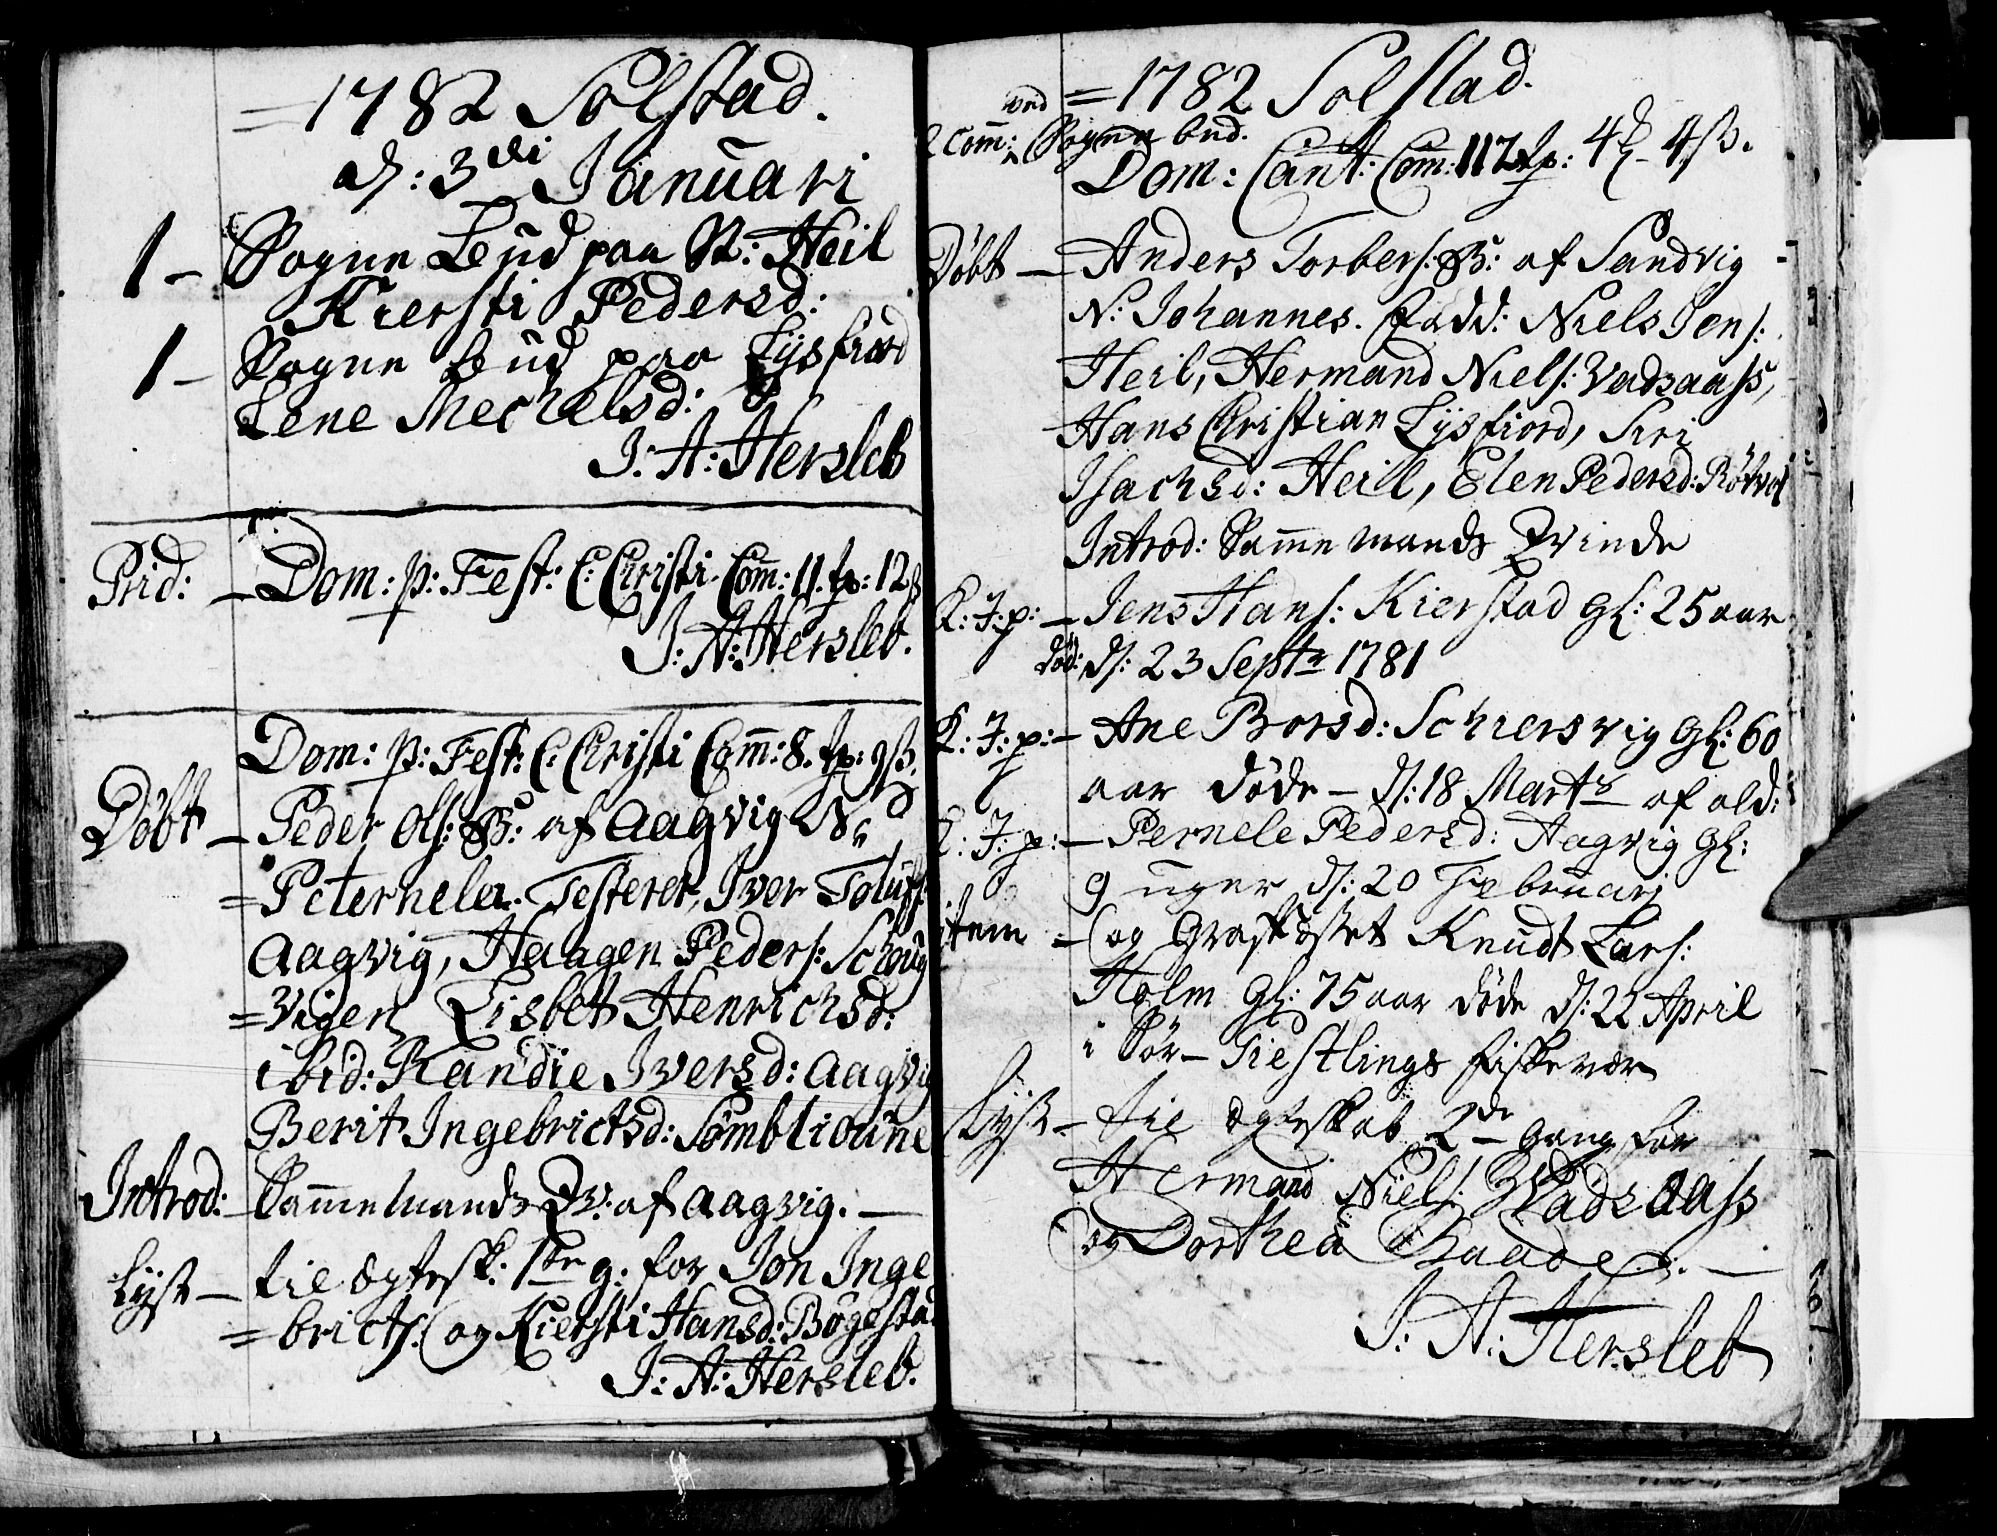 = 1782 Solstad.
d: 3di Januari
1 - Sogne Bud paa N: Heil
Kiersti Pedersd:
1 - Sogne bud paa Lysfiord
Lene Mechelsd:
J: A: Hersleb
Prid: - Dom: p: Fest: C: Christi Com: 11. tp: 12ß
J: A: Hersleb.
Dom: p: Fest: C: Christi Com: 8. tp: 9ß.
Døbt - Peder Ols: B: af Aagvig N:
= Peternela. Testerer, Iver Tolufs:
Aagvig, Haagen Peders: Schoug
= vigen Lisbet Henrichsd:
ibid: Randie Iversd: Aagvig
Berit Ingebrictsd: Sømblioune
Introd: - Samme Mands Qv: af Aagvig. -
Lyst - til Ægtesk: 1ste g: for Jon Inge
= bricts: og Kiersti Hansd: Bøgestad
J: A: Hersleb.
= 1782 Solstad.
ved
2 Com: Sogne bud.
Dom: Cant: Com: 112 tp: 4 - 4ß.
Døbt - Anders Torbers: B: af Sandvig
N: Johannes. Fadd: Niels Jens:
Heil, Hermand Niels: Vadsaass,
Hans Christian Lysfiord, Siri
Isachsd: Heill, Elen Pedersd: Røtvol
Introd: Samme mands Qvinde
K: J: p: - Jens Hans: Kierstad Gl: 25 aar
død: d: 23 Septr 1781
K: J: p: - Ane Borsd: Schiersvig Gl: 60
aar døde - d: 18 Marts af ald:
K: J: p: - Pernele Pedersd: Aagvig Gl:
9 uger d: 20 Februarj
item - og Grafkastet Knudt Lars:
Holm Gl: 75 aar døde d: 22 April
i Sør - Tiestlings fiskevær
Lyst - til Ægteskab 2den gang for
Hermand Niels: Vadsaass
og Dorthea Baade. -
J: A: Hersleb